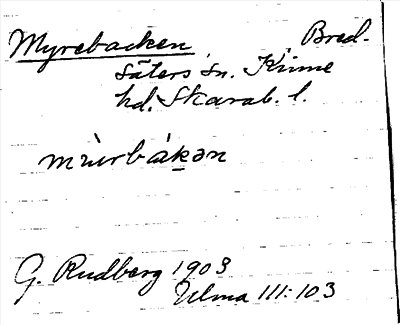 Myrebacken Bred-
säters sn. Kinne
hd. Skarab. l.
mùrbàkən
G. Rudberg 1903
Ulma 111:103